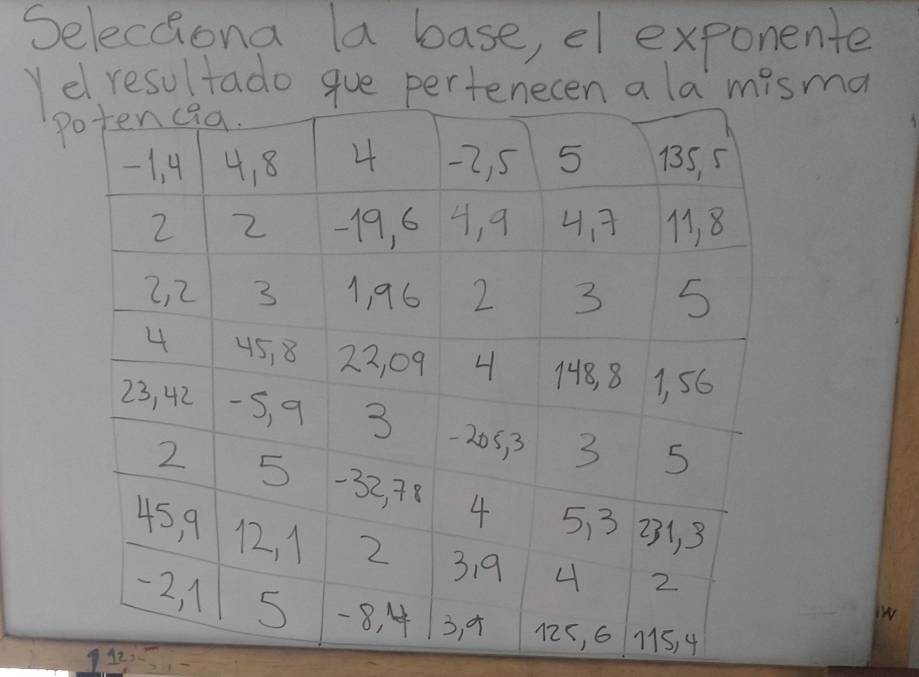 Selecciona la base, el exponente
y el resultado que pertenecen a la misma
potencia.
-1,4 4,8 4 -2,5 5 135,5
2 2 -19,6 4,9 4,7 11,8
2,2 3 1,96 2 3 5
4 45,8 22,09 4 148,8 1,56
23,42 -5,9 3 -205,3 3 5
2 5 -32,78 4 5,3 231,3
45,9 12,1 2 3,9 4 2
-2,1 5 -8,4 3,9 125,6 115,4